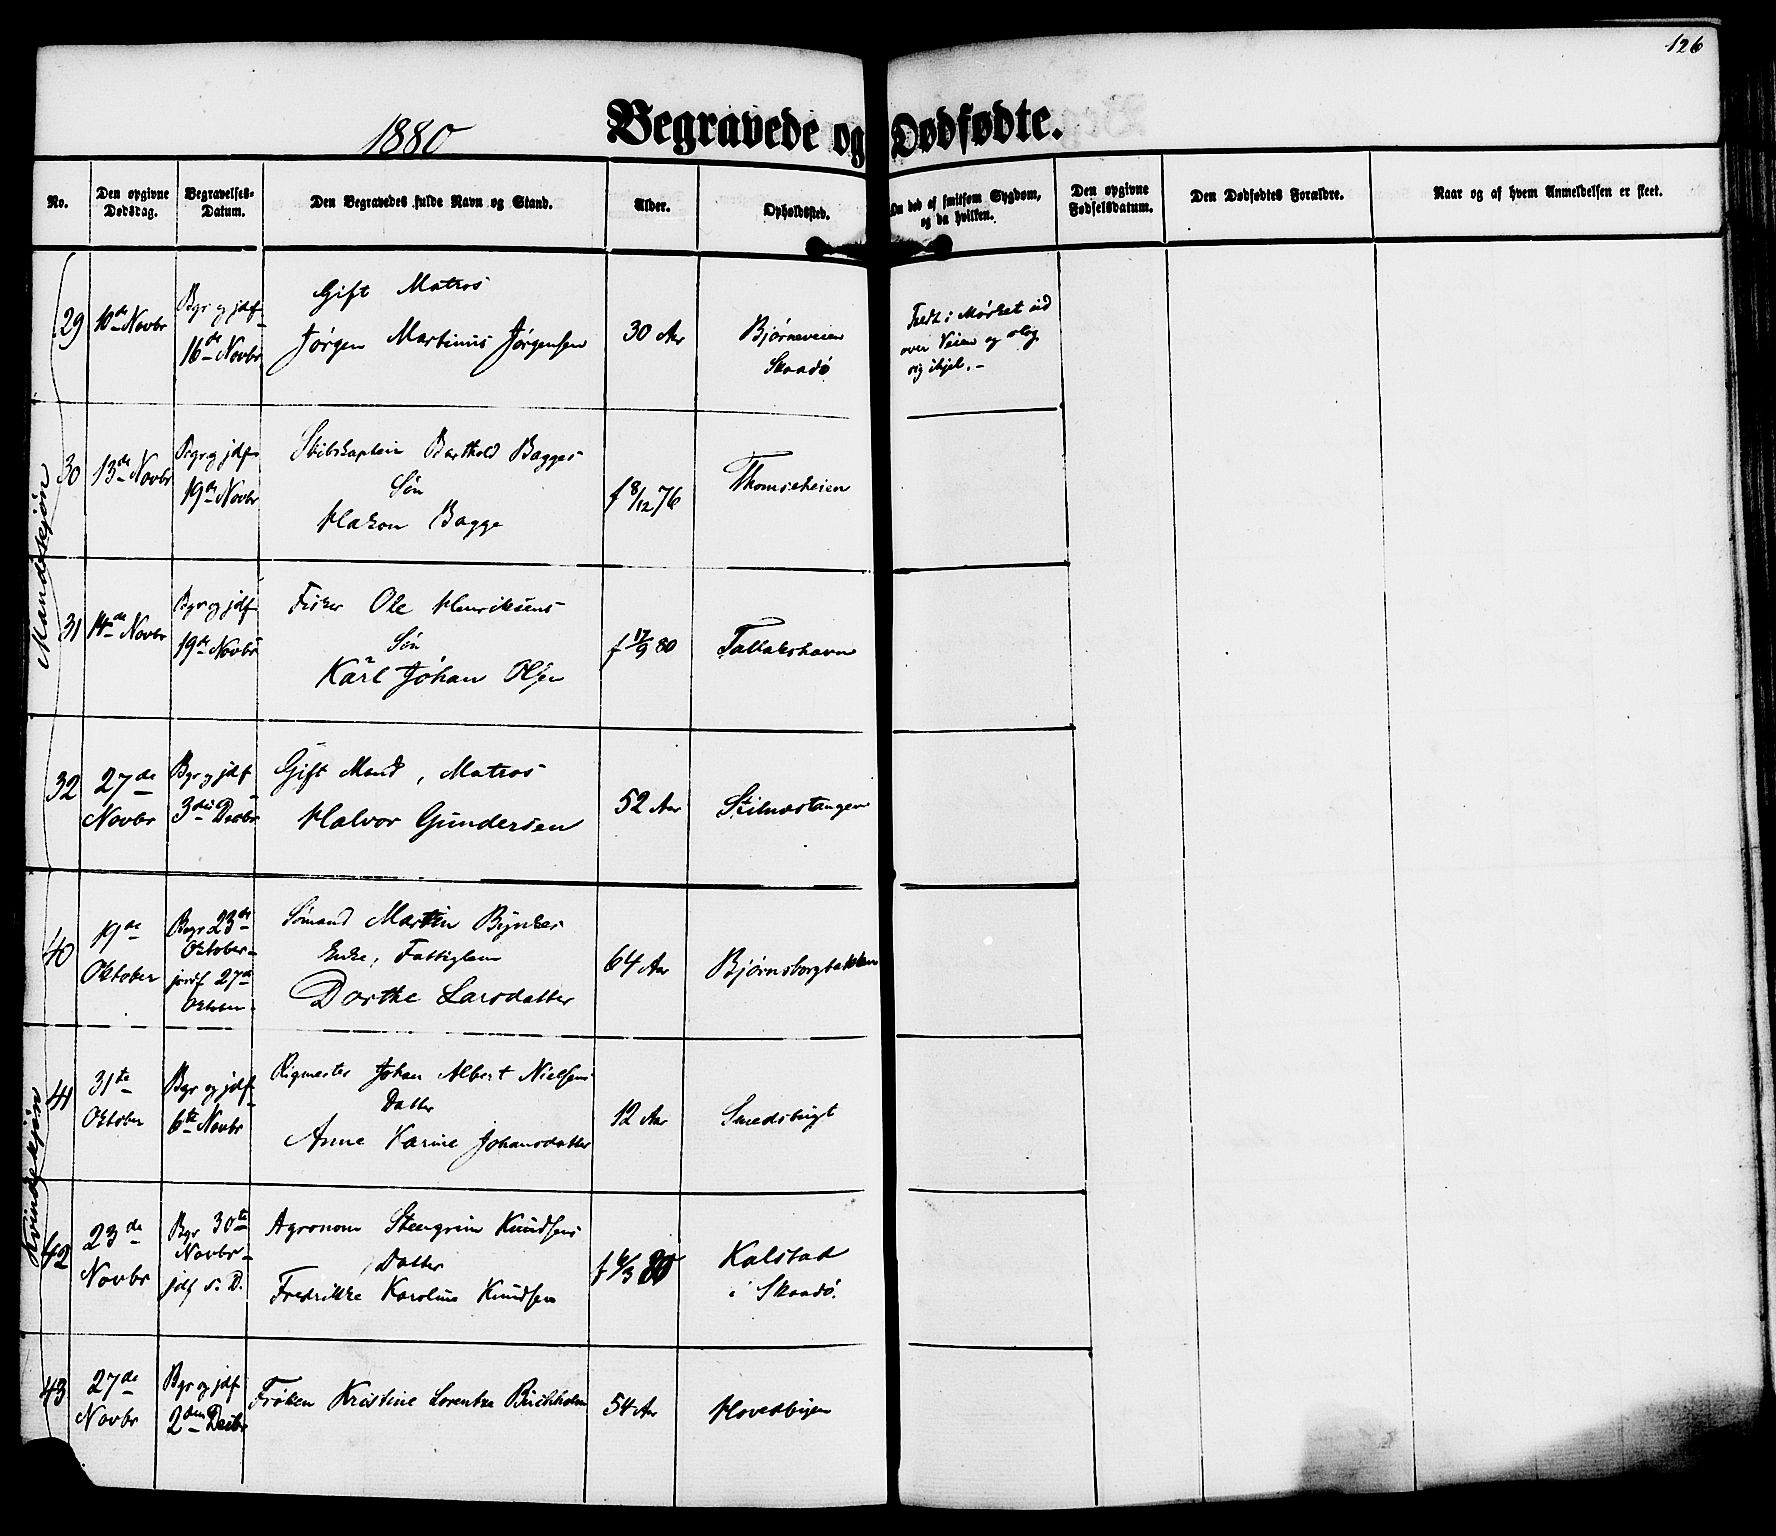 126
1880 Begravede og Dødfødte.
No. Den opgivne Dødsdag. Begravelses-Datum. Den Begravedes fulde Navn og Stand. Alder. Opholdssted. Om død af smitsom Sygdom, og da hvilken. Den opgivne Fødselsdatum. Den Dødfødtes Forældre. Naar og af hvem Anmeldelsen er skeet.
Mandskjøn
29 10de Novbr
Bgr og jdf
16de Novbr
Gift Matros
Jørgen Martinus Jørgensen
30 Aar
Bjørneveien
Skaadø
Traadt i Mørket ud
over Veien og slog
sig ihjel.-
30 13de Novbr
Bgr og jdf
19de Novbr
Skibskaptein Barthold Bagges
Søn
Hakon Bagge
f 8/12 76
Thomseheien
31 14de Novbr
Bgr og jdf
19de Novbr
Fisker Ole Henriksens
Søn
Karl Johan Olsen
f 17/9 80
Tallakshavn
32 27de
Novbr
Bgr og jdf
3die Decbr
Gift Mand, Matros
Halvor Gundersen
52 Aar
Stilnæstangen
Kvindekjøn
40 19de
Oktober
Bgr 23de
Oktober-
jordf 27de
Oktober
Sømand Martin Bynkes
Enke, Fattiglem
Dorthe Larsdatter
64 Aar
Bjørnsborgbakken
41 31te
Oktober
Bgr og jdf
6te Novbr
Rigmester Johan Albert Nielsens
Datter
Anne Karine Johansdatter
12 Aar
Smedsbugt
42 23de
Novbr
Bgr 30te
Novbr-
jdf s. D.
Agronom Steengrim Knudsens
Datter
Fredrikke Karoline Knudsen
f 6/3 80
Kalstad
i Skaadø.
43 27de
Novbr
Bgr og jdf
2den Decbr
Frøken Kristine Lorentze Buchholm
54 Aar
Hovedbyen